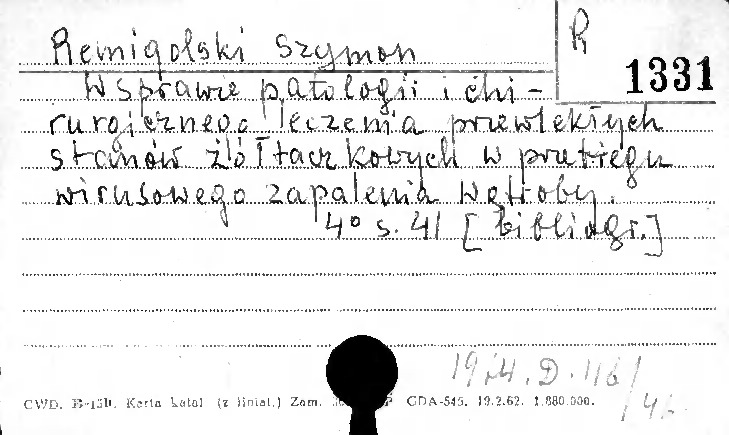 Remigolski Szymon
R 1331
W sprawie patologii i chi-
rurgicznego leczenia przewlekłych
stanów żółtaczkowych w przebiegu
wirusowego zapalenia wątroby.
4° s. 41 [bibliogr.]
D. 116/
CWD. Karta katal. (z liniat.) Zam. GDA-545. 19.2.62. 1.880.000.